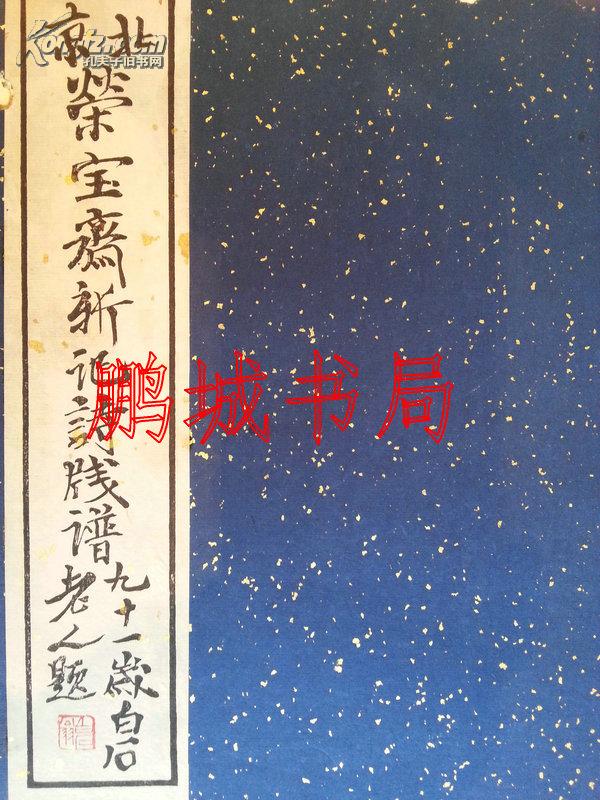 北京榮宝齋新记詩牋谱
九十一歲白石
老人题
鹏城书局
Kongfz.com
孔夫子旧书网